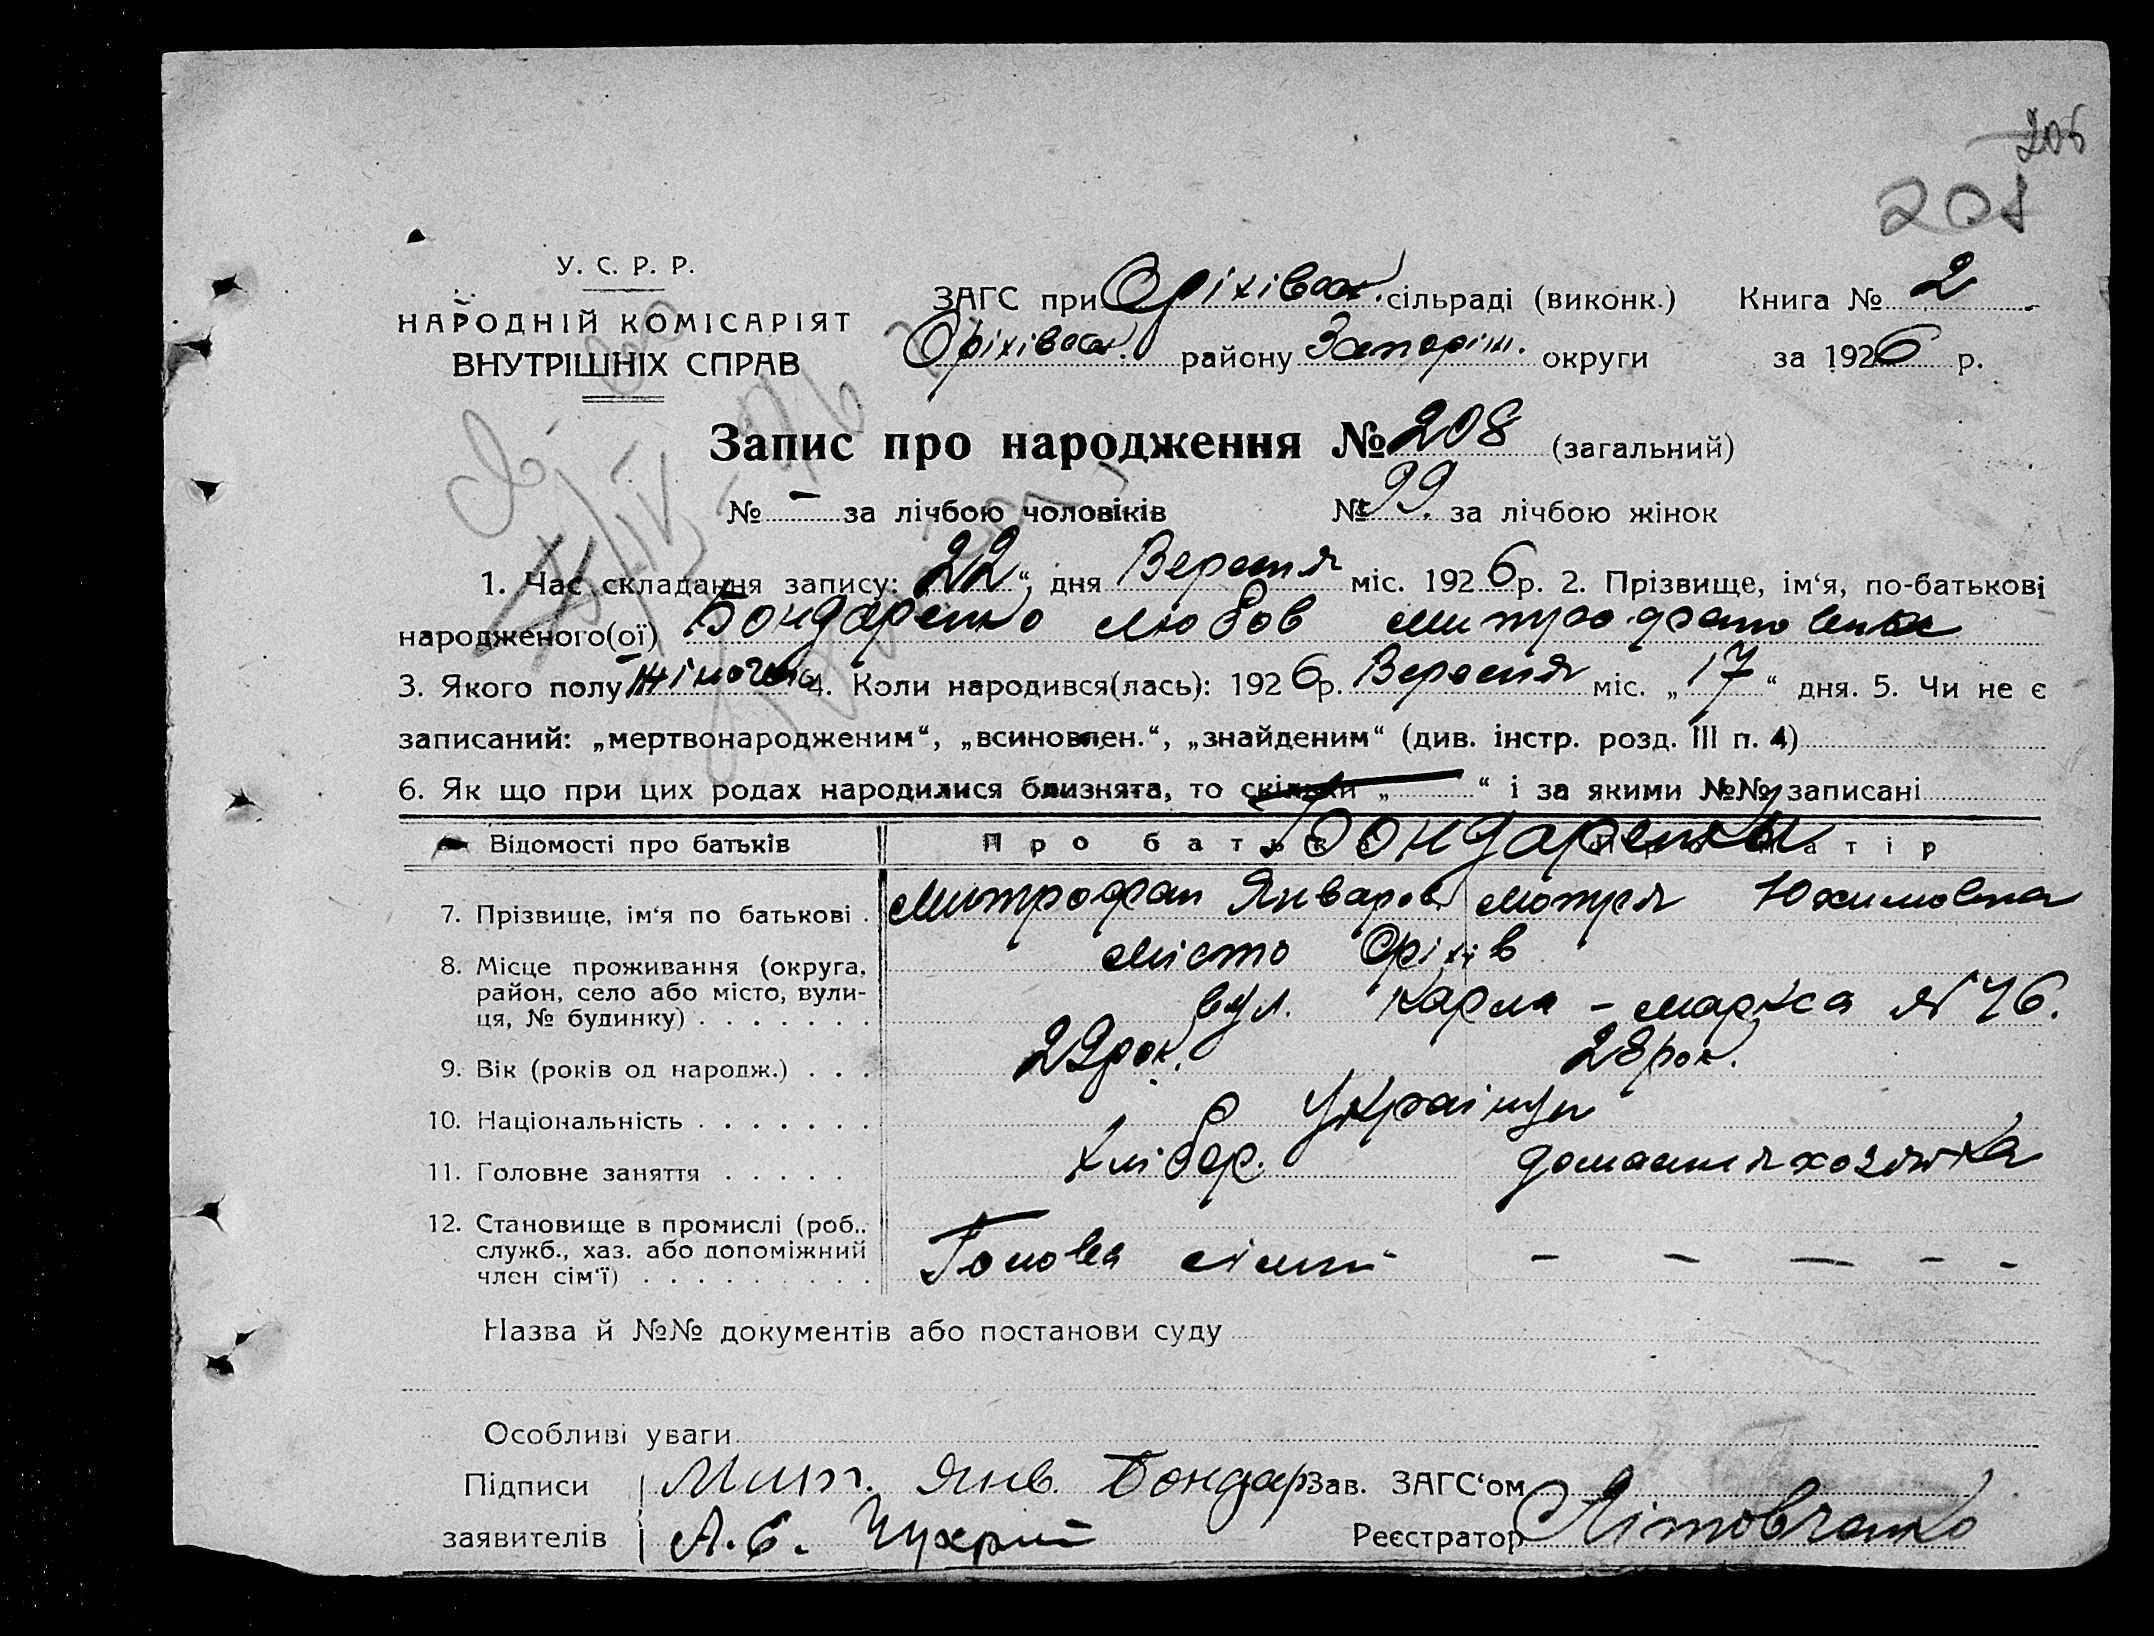 206
201
У. С. Р. Р.
НАРОДНІЙ КОМІСАРІЯТ
ВНУТРІШНІХ СПРАВ
ЗАГС при Оріхівськ. сільраді (виконк.) Книга № 2
Оріхівськ. району Запоріж. округи за 1926 р.
Запис про народження № 208 (загальний)
№ - за лічбою чоловіків № 99. за лічбою жінок
1. Час складання запису: „22“ дня Вересня міс. 1926 р. 2. Прізвище, ім‘я, по-батькові
народженого(ої) Бондаренко Любов Митрофановна
3. Якого полу Жіночого 4. Коли народився(лась): 1926 р. Вересня міс. „17“ дня. 5. Чи не є
записаний: „мертвонародженим“, „всиновлен.“, „знайденим“ (див. інстр. розд. III п. 4)
6. Як що при цих родах народилися близнята, то скільки „ “ і за якими №№ записані
Відомості про батьків Про батька Про матір
Бондаренки
7. Прізвище, ім‘я по батькові . Митрофан Январов. Мотря Юхимовна
8. Місце проживання (округа, район, село або місто, вули-ця, № будинку) . . . . . . . місто Оріхів
вул. Карла - Маркса № 76.
9. Вік (років од народж.) . . . 29 рок. 28 рок.
10. Національність . . . . . . . Українци
11. Головне заняття . . . . . Хлібор. домашня хозяйка
12. Становище в промислі (роб., служб., хаз. або допоміжний член сім‘ї) . . . . . . . . . Голова сімьї - - - - -
Назва й №№ документів або постанови суду
Особливі уваги
Підписи Мит. Янв. Бондар Зав. ЗАГС‘ом
заявителів А. Є. Чухрий Реєстратор Літовченко